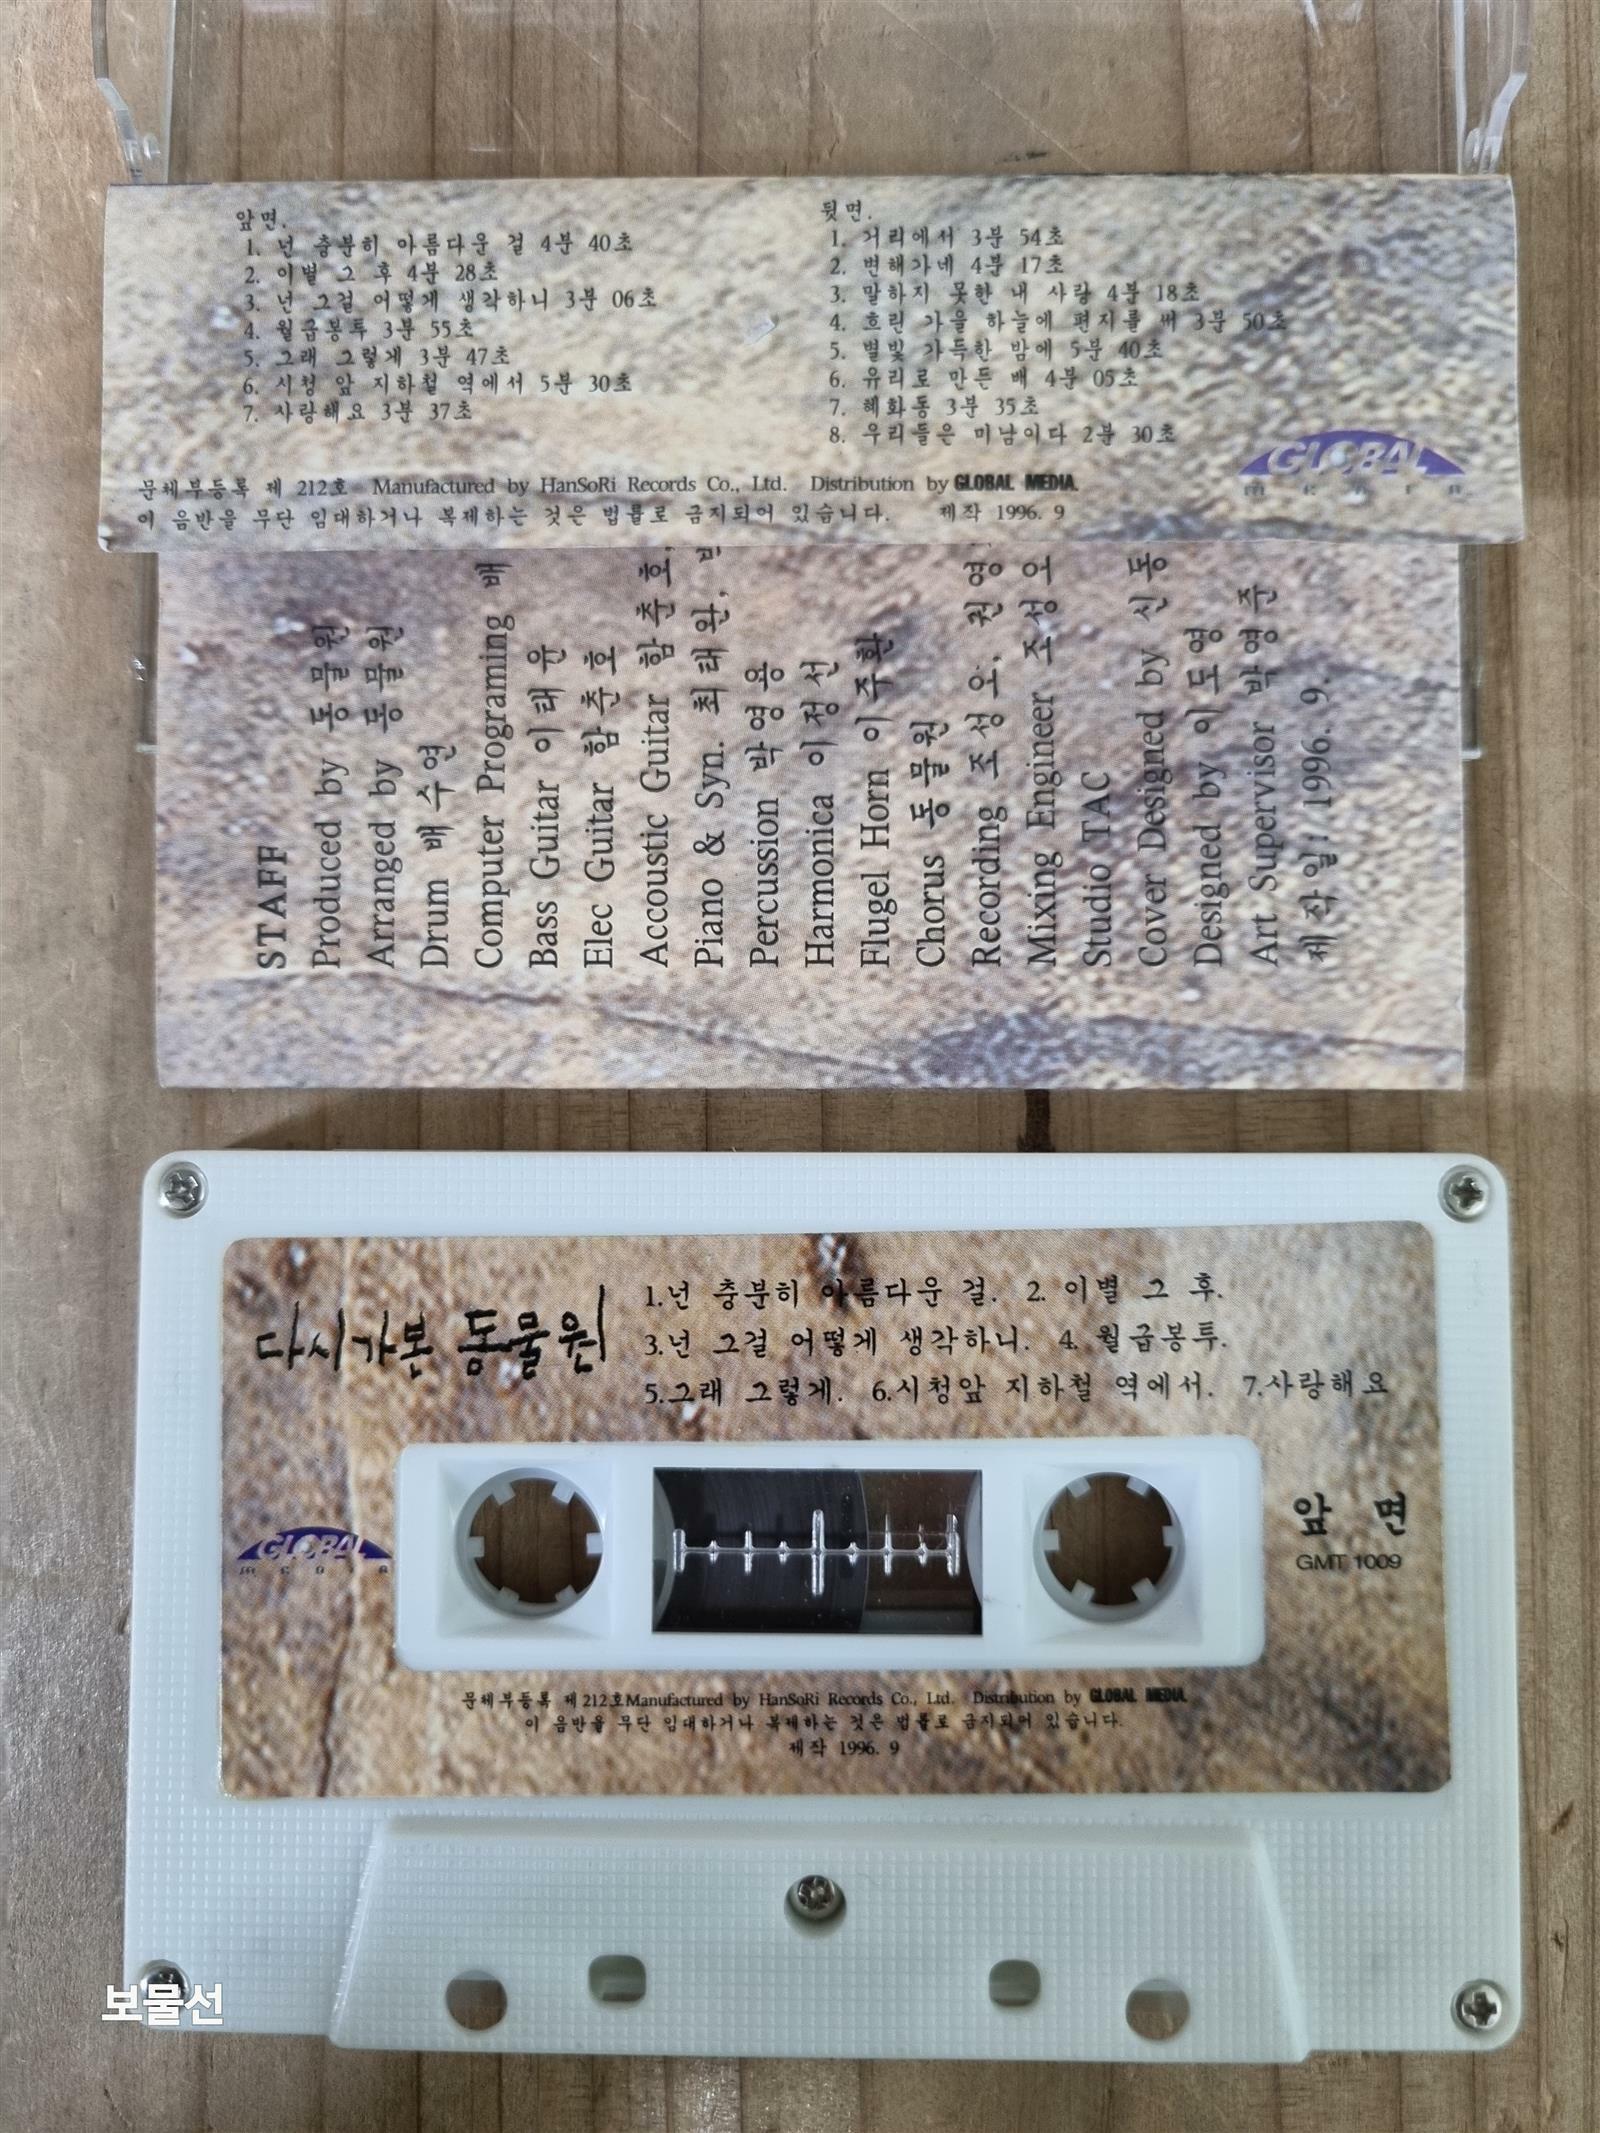 앞면.
1. 넌 충분히 아름다운 걸 4분 40초
2. 이별 그 후 4분 28초
3. 넌 그걸 어떻게 생각하니 3분 06초
4. 월급봉투 3분 55초
5. 그래 그렇게 3분 47초
6. 시청 앞 지하철 역에서 5분 30초
7. 사랑해요 3분 37초
뒷면.
1. 거리에서 3분 54초
2. 변해가네 4분 17초
3. 말하지 못한 내 사랑 4분 18초
4. 흐린 가을 하늘에 편지를 써 3분 50초
5. 별빛 가득한 밤에 5분 40초
6. 유리로 만든 배 4분 05초
7. 혜화동 3분 35초
8. 우리들은 미남이다 2분 30초
GLOBAL
MEDIA
문체부등록 제 212호 Manufactured by HanSoRi Records Co., Ltd. Distribution by GLOBAL MEDIA.
이 음반을 무단 임대하거나 복제하는 것은 법률로 금지되어 있습니다. 제작 1996. 9
STAFF
Produced by 동물원
Arranged by 동물원
Drum 배수연
Computer Programing 배
Bass Guitar 이태윤
Elec Guitar 함춘호
Accoustic Guitar 함춘호,
Piano & Syn. 최태완,
Percussion 박영용
Harmonica 이정선
Flugel Horn 이주환
Chorus 동물원
Recording 조성오, 권영
Mixing Engineer 조성오
Studio TAC
Cover Designed by 신동
Designed by 이도영
Art Supervisor 박영주
제작일: 1996. 9.
다시가본 동물원
1.넌 충분히 아름다운 걸. 2. 이별 그 후.
3.넌 그걸 어떻게 생각하니. 4. 월급봉투.
5.그래 그렇게. 6.시청앞 지하철 역에서. 7.사랑해요
GLOBAL
MEDIA
앞 면
GMT 1009
문체부등록 제212호Manufactured by HanSoRi Records Co., Ltd. Distribution by GLOBAL MEDIA.
이 음반을 무단 임대하거나 복제하는 것은 법률로 금지되어 있습니다.
제작 1996. 9
보물선